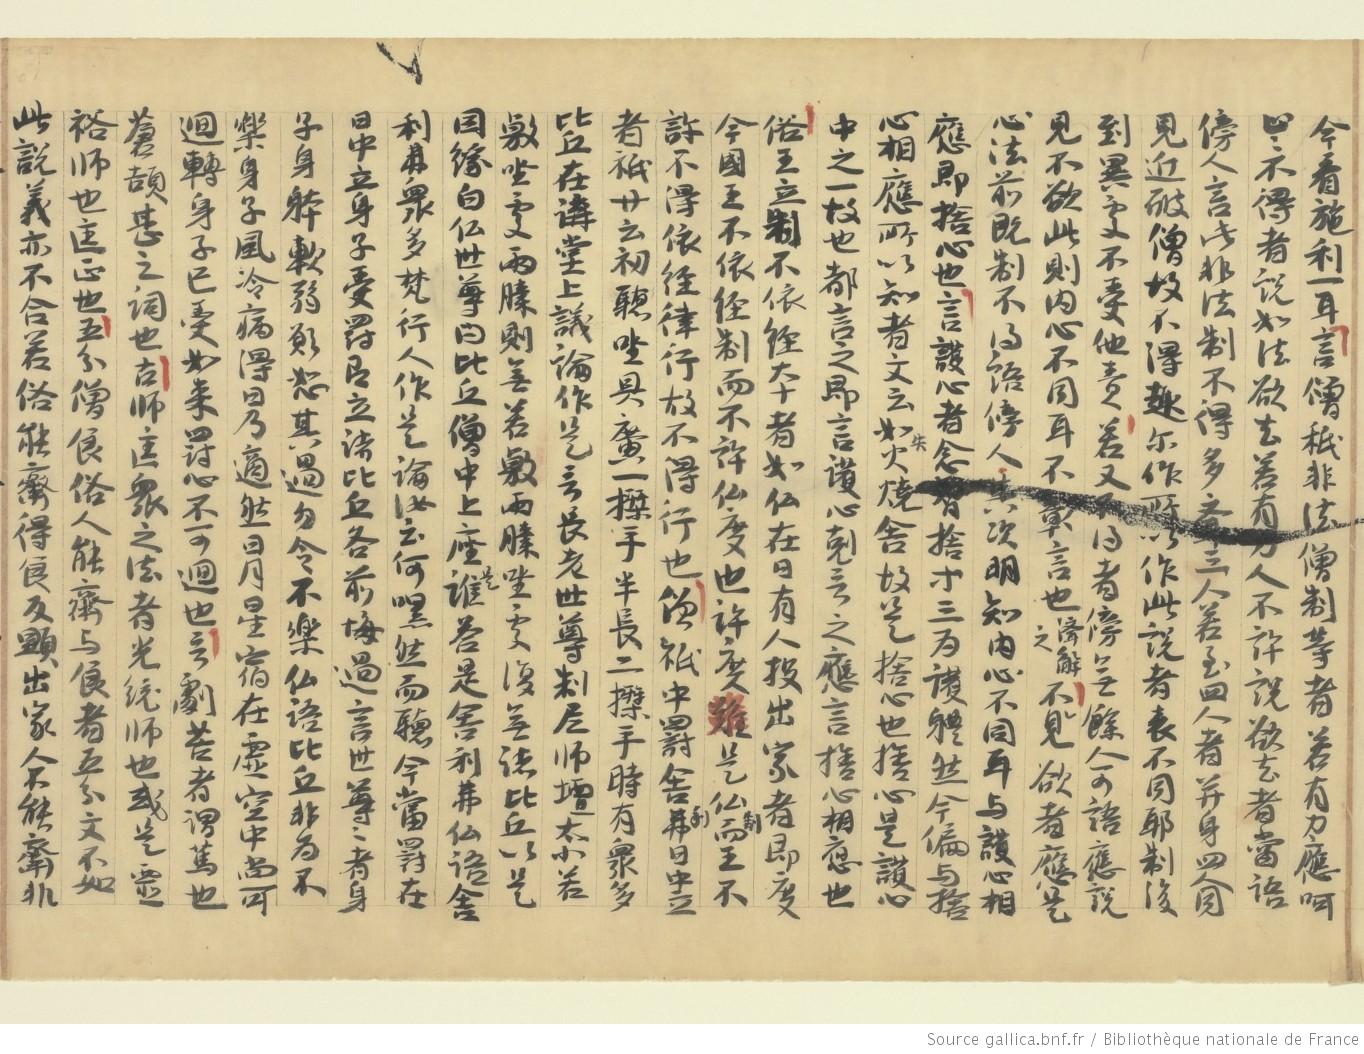 今看施利一耳言僧秖非法僧制等者若有力應呵
不得者說如法欲去若有力人不許說欲去者當語
傍人言此非法制不得多若三人若至四人者并身四人同
見近破僧故不得趣尔作所以作此說者表不同耶制後
到異處不要他責若又不得者傍无餘人可語應說
見不欲此則内心不同耳不彰言也濟解之不見欲者應是
心法前既制不得語傍人其次明知内心不同耳与護心相
應即捨心也言護心者念智捨十三為護體然今偏与捨
心相應所以知者文云如火燒舍故是捨心也捨心是護心
中之一故也都言之即言護心剋言之應言捨心相應也
俗王立制不依經大十者如仏在日有人投出家者即度
今國王不依經制而不許仏度也許度是仏制而王不
許不得依經律行故不得行也僧祇中罰舍利弗日中立
者祇廿云初聽坐具廣一搩手半長二搩手時有眾多
比丘在講堂上議論作是言長老世尊制尼师壇太小若
敷坐處兩膝則无若敷兩膝坐處復无諸比丘以是
因緣白仏世尊問比丘僧中上座是誰荅是舍利弗仏語舍
利弗眾多梵行人作是論汝云何嘿然而聽今當罰在
日中立身子受罸日立諸比丘各前悔過言世尊々者身
子身體軟弱願恕其過勿令不樂仏語比丘非為不
樂身子風冷病得日乃適然日月星宿在虛空中尚可
迴轉身子已受如來罸心不可迴也言劇苦者謂罵也
蒼頡甚之詞也古師匡眾之法者光統师也或是靈
裕师也匡正也五分僧食俗人能齋与食者五分文不如
此說義亦不合若俗能齋得食反顯出家人不能齋非
Source gallica.bnf.fr / Bibliothèque nationale de France